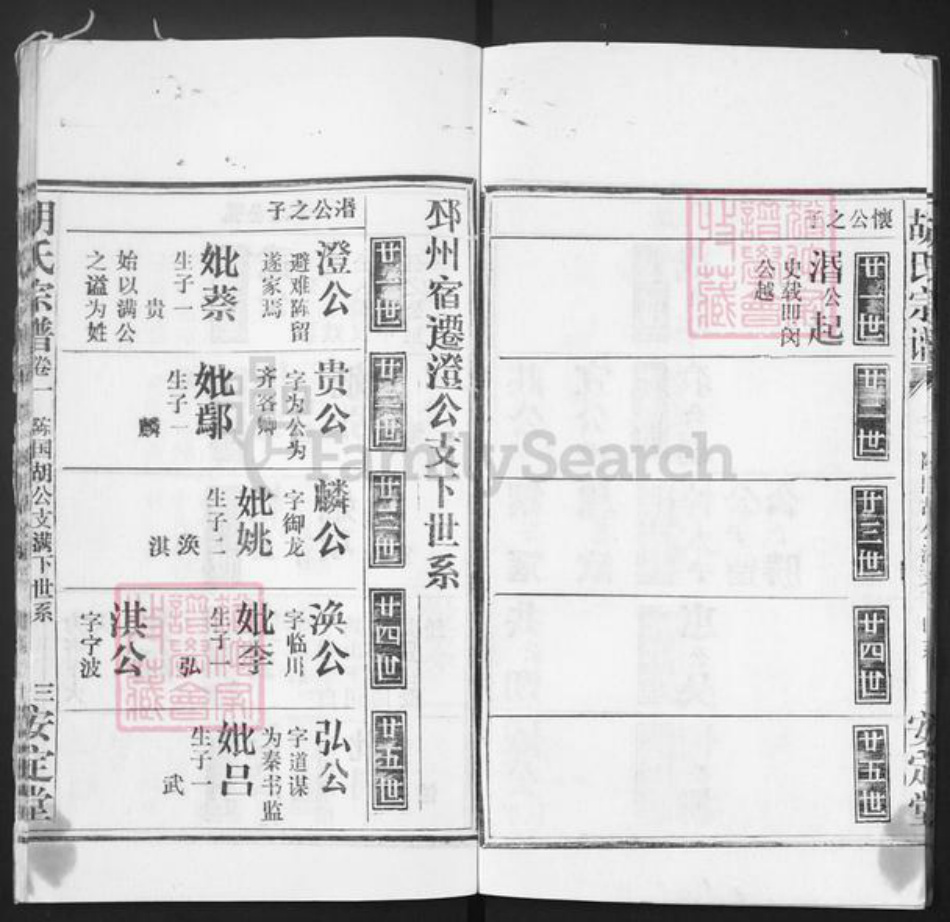 胡氏宗谱
安定堂
懷公之子
廿一世
湣公起
史载即闵
公越
廿二世
廿三世
廿四世
廿五世
邳州宿遷澄公支下世系
廿一世
廿二世
廿三世
廿四世
廿五世
湣公之子
澄公
避难陈留
遂家焉
妣蔡
生子一
贵
始以满公
之谥为姓
贵公
字为公为
齐客卿
妣鄢
生子一
麟
麟公
字御龙
妣姚
生子二
涣
淇
涣公
字临川
妣李
生子一
弘
淇公
字宁波
弘公
字道谋
为秦书监
妣吕
生子一
武
胡氏宗谱卷一
陈国胡公支满下世系
三安定堂
FamilySearch